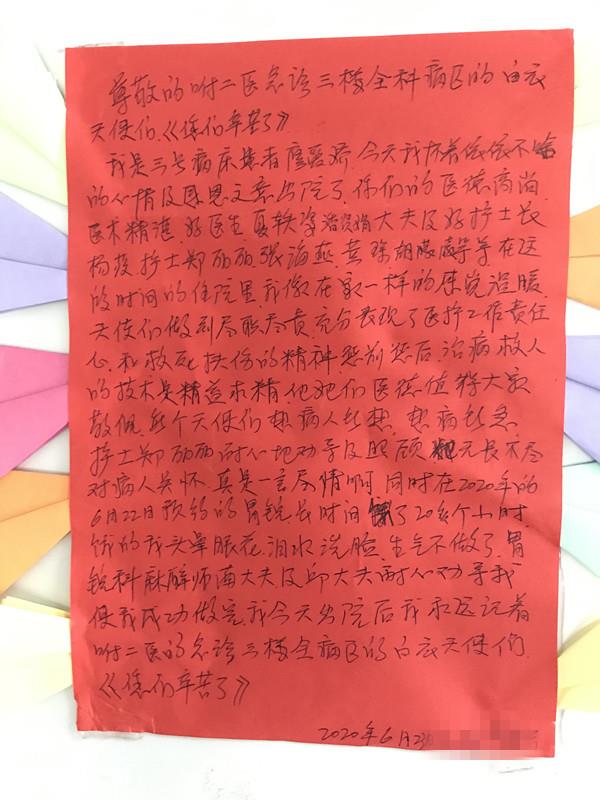 尊敬的附二医急诊三楼全科病区的白衣
天使们《你们辛苦了》
我是三号病床患者 今天我怀着依依不舍
的心情及感恩之意出院了 你们的医德高尚
医术精湛 好医生夏轶 大夫及好护士长
杨 护士郑丽丽 张海燕 黄 等等在这
段时间的住院里我像在家一样的感觉温暖
天使们做到尽职尽责充分表现了医护工作责任
心和救死扶伤的精神惩前毖后治病救人
的技术是精益求精他她们医德值得大家
敬佩 各个天使们想病人所想 急病 所急
护士郑丽丽耐心地劝导及照顾 无
对病人关怀 真是一言 情啊 同时在2020年的
6月22日预约的胃镜长时间 了20多个小时
饿的我头晕眼花 泪水洗脸 生气不做了 胃
镜科麻醉师 大夫及邱大夫耐心劝导我
使我成功做完 我今天出院后我永远记着
附二医的急诊三楼全病区的白衣天使们
《你们辛苦了》
2020年6月23日